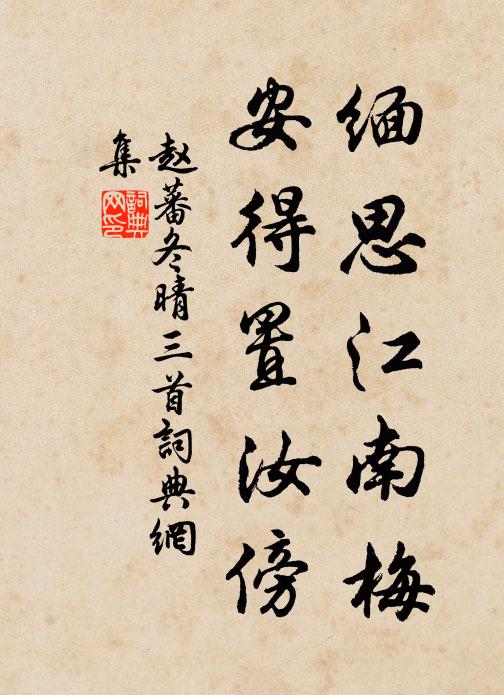 缅思江南梅
安得置汝傍
赵蕃冬晴三首詞典網
集
詞典网印